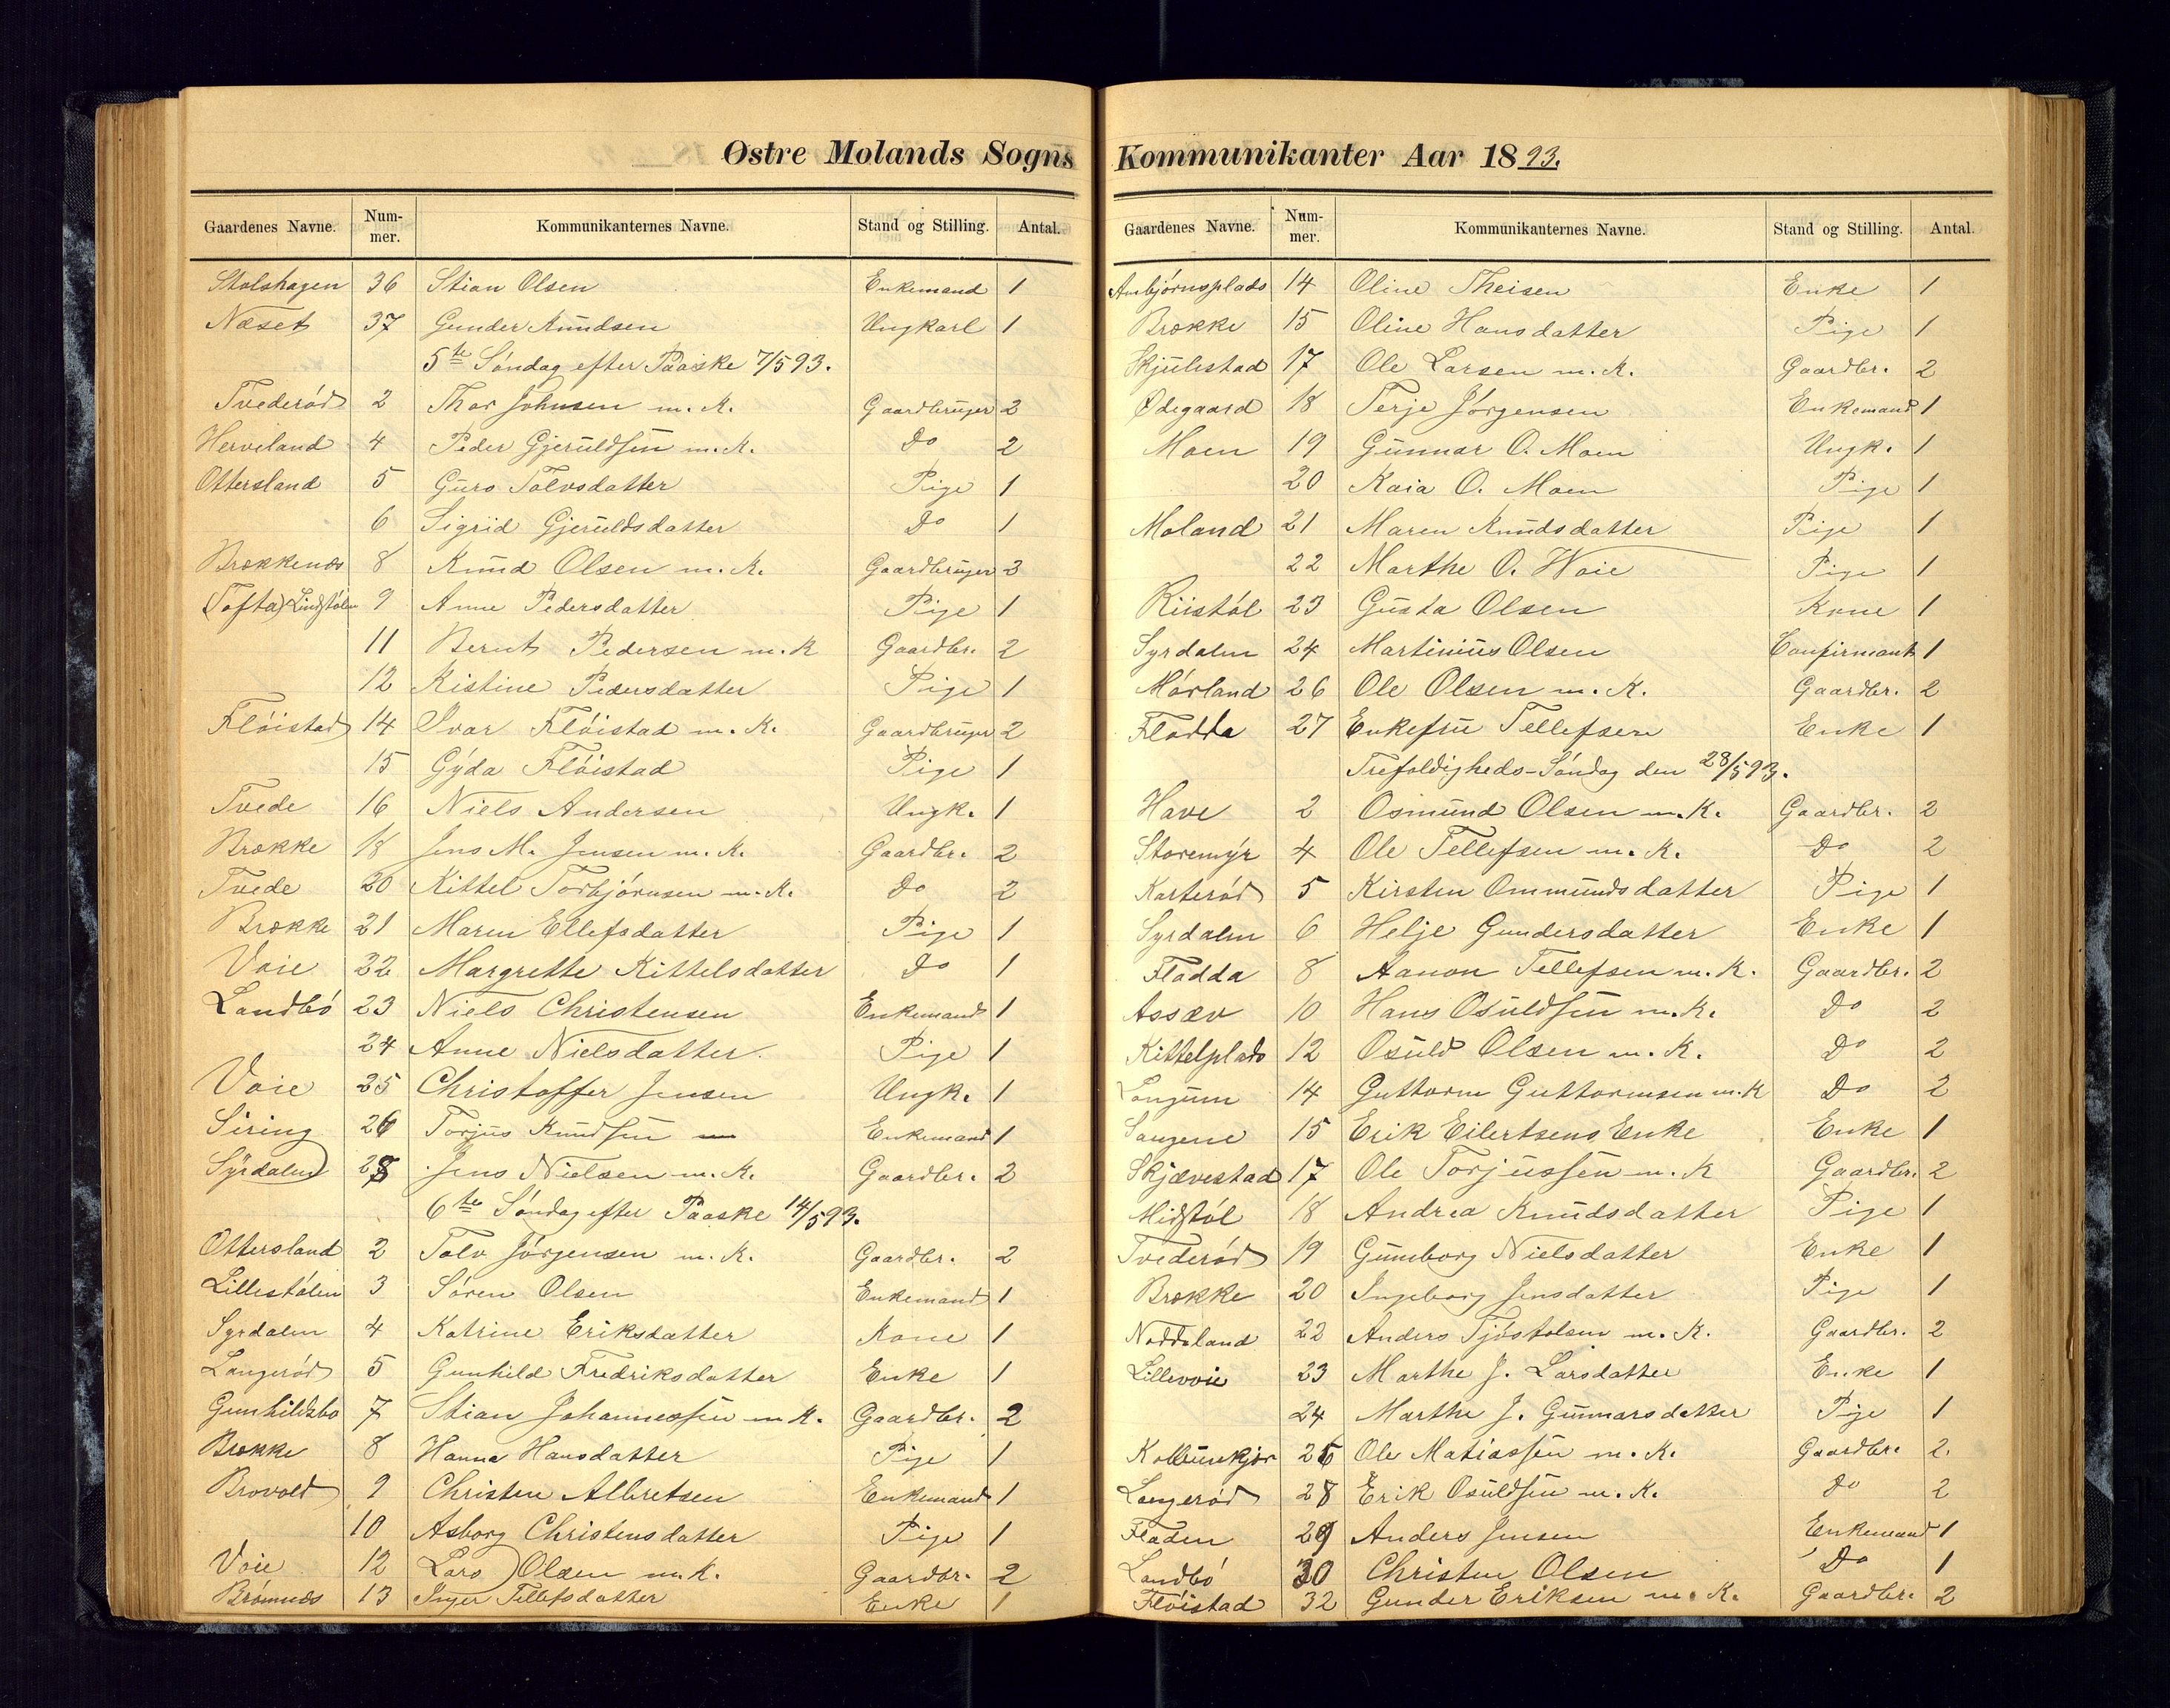 Østre Molands Sogns
Gaardenes Navne. Nummer. Kommunikanternes Navne. Stand og Stilling. Antal.
Stolshagen 36 Stian Olsen Enkemand 1
Næset 37 Gunder Knudsen Ungkarl 1
5te Søndag efter Paaske 7/5 93.
Tvederød 2 Thor Johnsen m. K. Gaardbruger 2
Herveland 4 Peder Gjeruldsen m. K. Do 2
Ottersland 5 Guro Tolvsdatter Pige 1
6 Sigrid Gjeruldsdatter Do 1
Brækkenes 8 Knud Olsen m. K. Gaardbruger 3
(Tofta) Lindstølen 9 Anne Pedersdatter Pige 1
11 Bernt Pedersen m. K Gaardbr. 2
12 Kistine Pedersdatter Pige 1
Fløistad 14 Ivar Fløistad m. K. Gaardbruger 2
15 Gyda Fløistad Pige 1
Tvede 16 Niels Andersen Ungk. 1
Brække 18 Jens M. Jensen m. K. Gaardbr. 2
Tvede 20 Kittel Torbjørnsen m. K. Do 2
Brække 21 Maren Ellefsdatter Pige 1
Voie 22 Margrethe Kittelsdatter Do 1
Landbø 23 Niels Christensen Enkemand 1
24 Anne Nielsdatter. Pige 1
Voie 25 Christoffer Jensen Ungk. 1
Siring 26 Torjus Knudsen Enkemand 1
Syrdalen 28 Jens Nielsen m. K. Gaardbr. 2
6te Søndag efter Paaske 14/5 93.
Ottersland 2 Tolv Jørgensen m. K. Gaardbr. 2
Lillestølen 3 Søren Olsen Enkemand 1
Syrdalen 4 Katrine Eriksdatter Kone 1
Langerød 5 Gunhild Fredriksdatter Enke 1
Gunhildsbo 7 Stian Johannessen m K. Gaardbr. 2
Brække 8 Hanna Hansdatter Pige 1
Brovold 9 Christen Albretsen Enkemand 1
10 Asborg Christensdatter Pige 1
Voie 12 Lars Olsen m. K. Gaardbr. 2
Brømnes 13 Inger Tellefsdatter Enke 1
Kommunikanter Aar 1893.
Gaardenes Navne. Nummer. Kommunikanternes Navne. Stand og Stilling. Antal.
Anbjørnsplads 14 Oline Theisen Enke 1
Brække 15 Oline Hansdatter Pige 1
Skjulestad 17 Ole Larsen m. K. Gaardbr. 2
Ødegaard 18 Terje Jørgensen Enkemand 1
Moen 19 Gunnar O. Moen Ungk. 1
20 Kaia O. Moen Pige 1
Moland 21 Maren Knudsdatter Pige 1
22 Marthe O. Woie Pige 1
Riistøl 23 Gusta Olsen Kone 1
Syrdalen 24 Martinius Olsen Confirmant 1
Mørland 26 Ole Olsen m. K. Gaardbr. 2
Flodda 27 Enkefru Tellefsen Enke 1
Trefoldigheds-Søndag den 28/5 93.
Have 2 Osmund Olsen m. K. Gaardbr. 2
Storemyr 4 Ole Tellefsen m. K. Do 2
Karterød 5 Kirsten Ommundsdatter Pige 1
Syrdalen 6 Helje Gundersdatter Enke 1
Flodda 8 Aanon Tellefsen m. K. Gaardbr. 2
Assæv 10 Hans Osuldsen m. K. Do 2
Kittelplads 12 Osuld Olsen m. K. Do 2
Longum 14 Guttorm Guttormsen m. K Do 2
Songene 15 Erik Eilertsens Enke Enke 1
Skjævestad 17 Ole Torjussen m. K Gaardbr. 2
Midtstøl 18 Andrea Knudsdatter Pige 1
Tvederød 19 Gunborg Nielsdatter Enke 1
Brække 20 Ingeborg Jensdatter Pige 1
Noddeland 22 Anders Tjøstolsen m. K. Gaardbr. 2
Lillevoie 23 Marthe J. Larsdatter Enke 1
24 Marthe J. Gunnarsdatter Pige 1
26 Ole Matiassen m. K. Gaardbr. 2.
Langerød 28 Erik Osuldsen m. K. Do 2
Fladen 29 Anders Jensen Enkemand 1
Landbø 30 Christen Olsen Do 1
Fløistad 32 Gunder Eriksen m. K. Gaardbr. 2